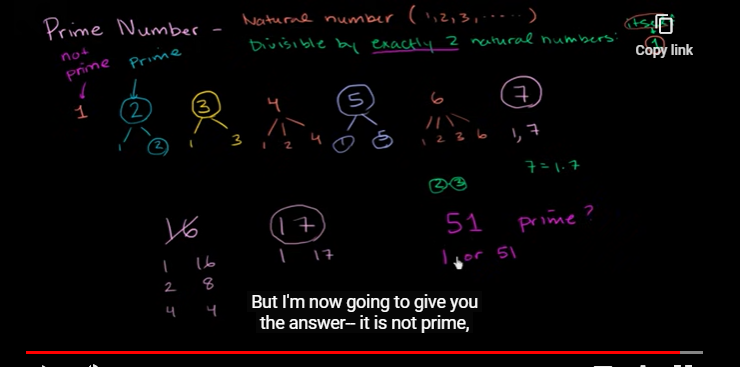 Prime Number - Natural number (1,2,3,.....)
Divisible by exactly 2 natural numbers: itself
1
Copy link
not prime
prime
1 2 3 4 5 6 7
1 2 1 3 1 2 4 1 5 1 2 3 6 1, 7
7 = 1·7
2·3
16 17 51 prime?
1 16 1 17 1 or 51
2 8
4 4
But I'm now going to give you
the answer-- it is not prime,